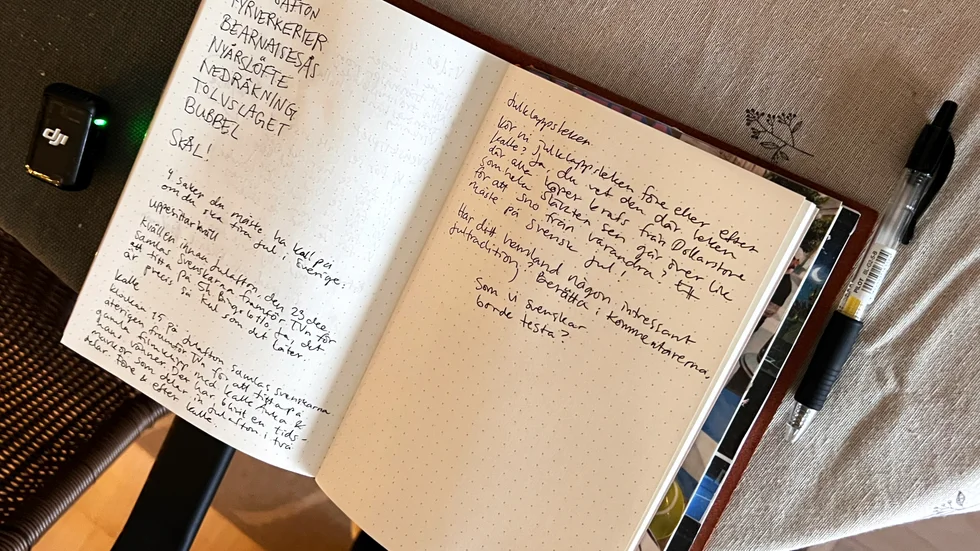 AFTON
FYRVERKERIER
BEARNAISESÅS
NYÅRSLÖFTE
NEDRÄKNING
TOLVSLAGET
BUBBEL
SKÅL!
4 saker du måste ha koll på
om du ska fira jul i Sverige:
Uppesittarkväll
Kvällen innan julafton, den 23 dec
samlas svenskarna framför TVn för
att titta på Bingolotto, ja, det
är precis så kul som det låter.
Kalle
Klockan 15 på julafton samlas svenskarna
återigen framför TVn för att titta på
gamla filmklipp med Kalle Anka &
hans vänner. Det har blivit en tids-
markör som delar in julafton i två
delar. Före & efter Kalle.
Julklappsleken
Kör vi julklappsleken före eller efter
Kalle? Ja du vet den där leken
där alla köper krafs från Dollarstore
som hela släkten sen går över lik
för att sno från varandra. Ett
måste på svensk jul!
Har ditt hemland någon intressant
jultradition? Berätta i kommentarerna,
Som vi svenskar
borde testa?
dji
PILOT